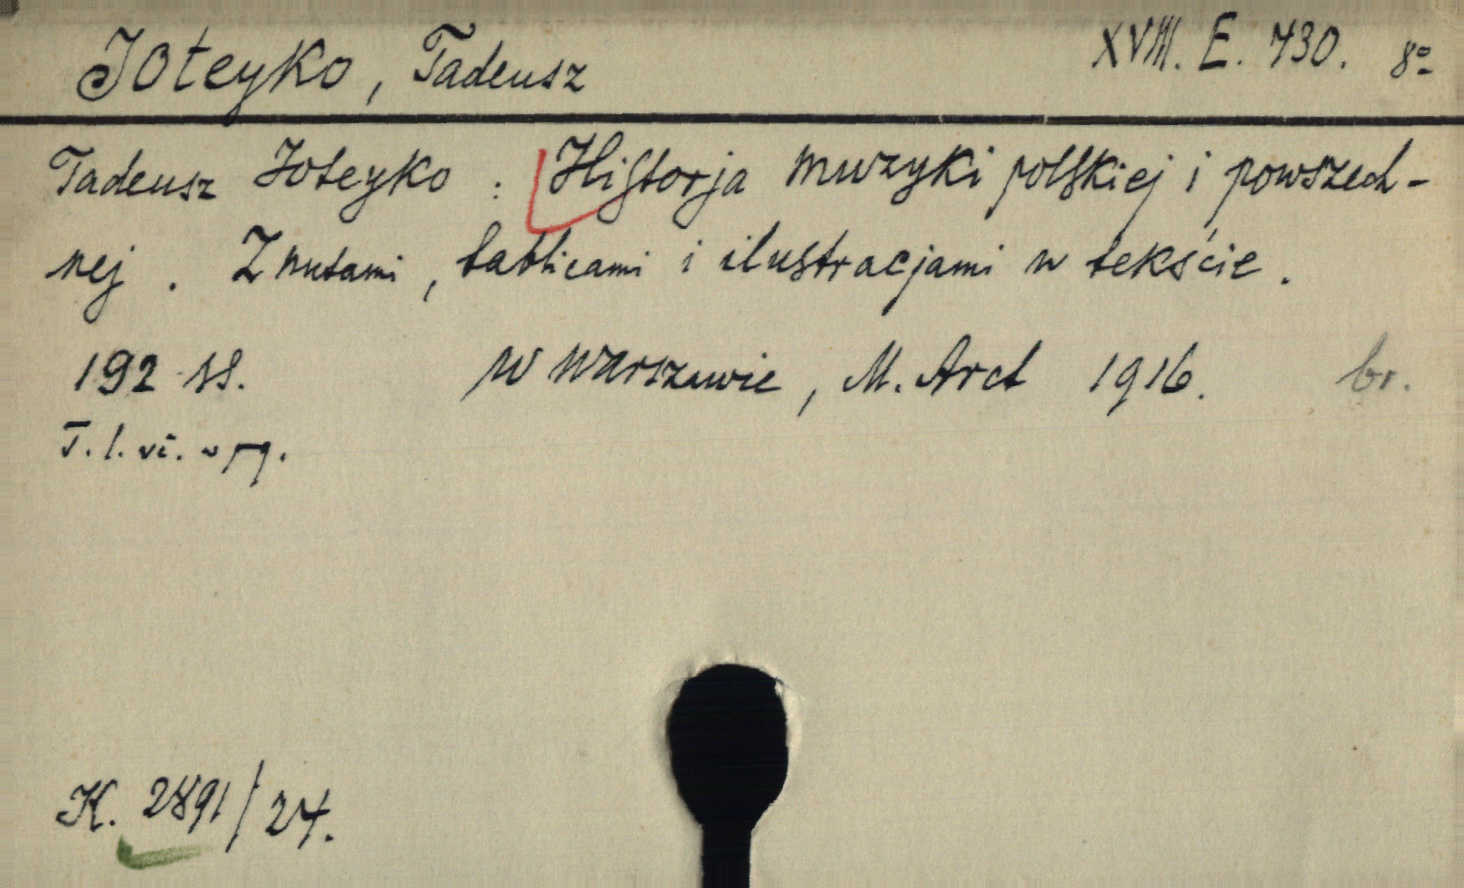 Joteyko, Tadeusz XVIII. E. 730. 8º
Tadeusz Joteyko : Historja muzyki polskiej i powszech-
nej . Z nutami , tablicami i ilustracjami w tekście .
192 ss. W Warszawie , M. Arct 1916. br.
K. 2891/24.